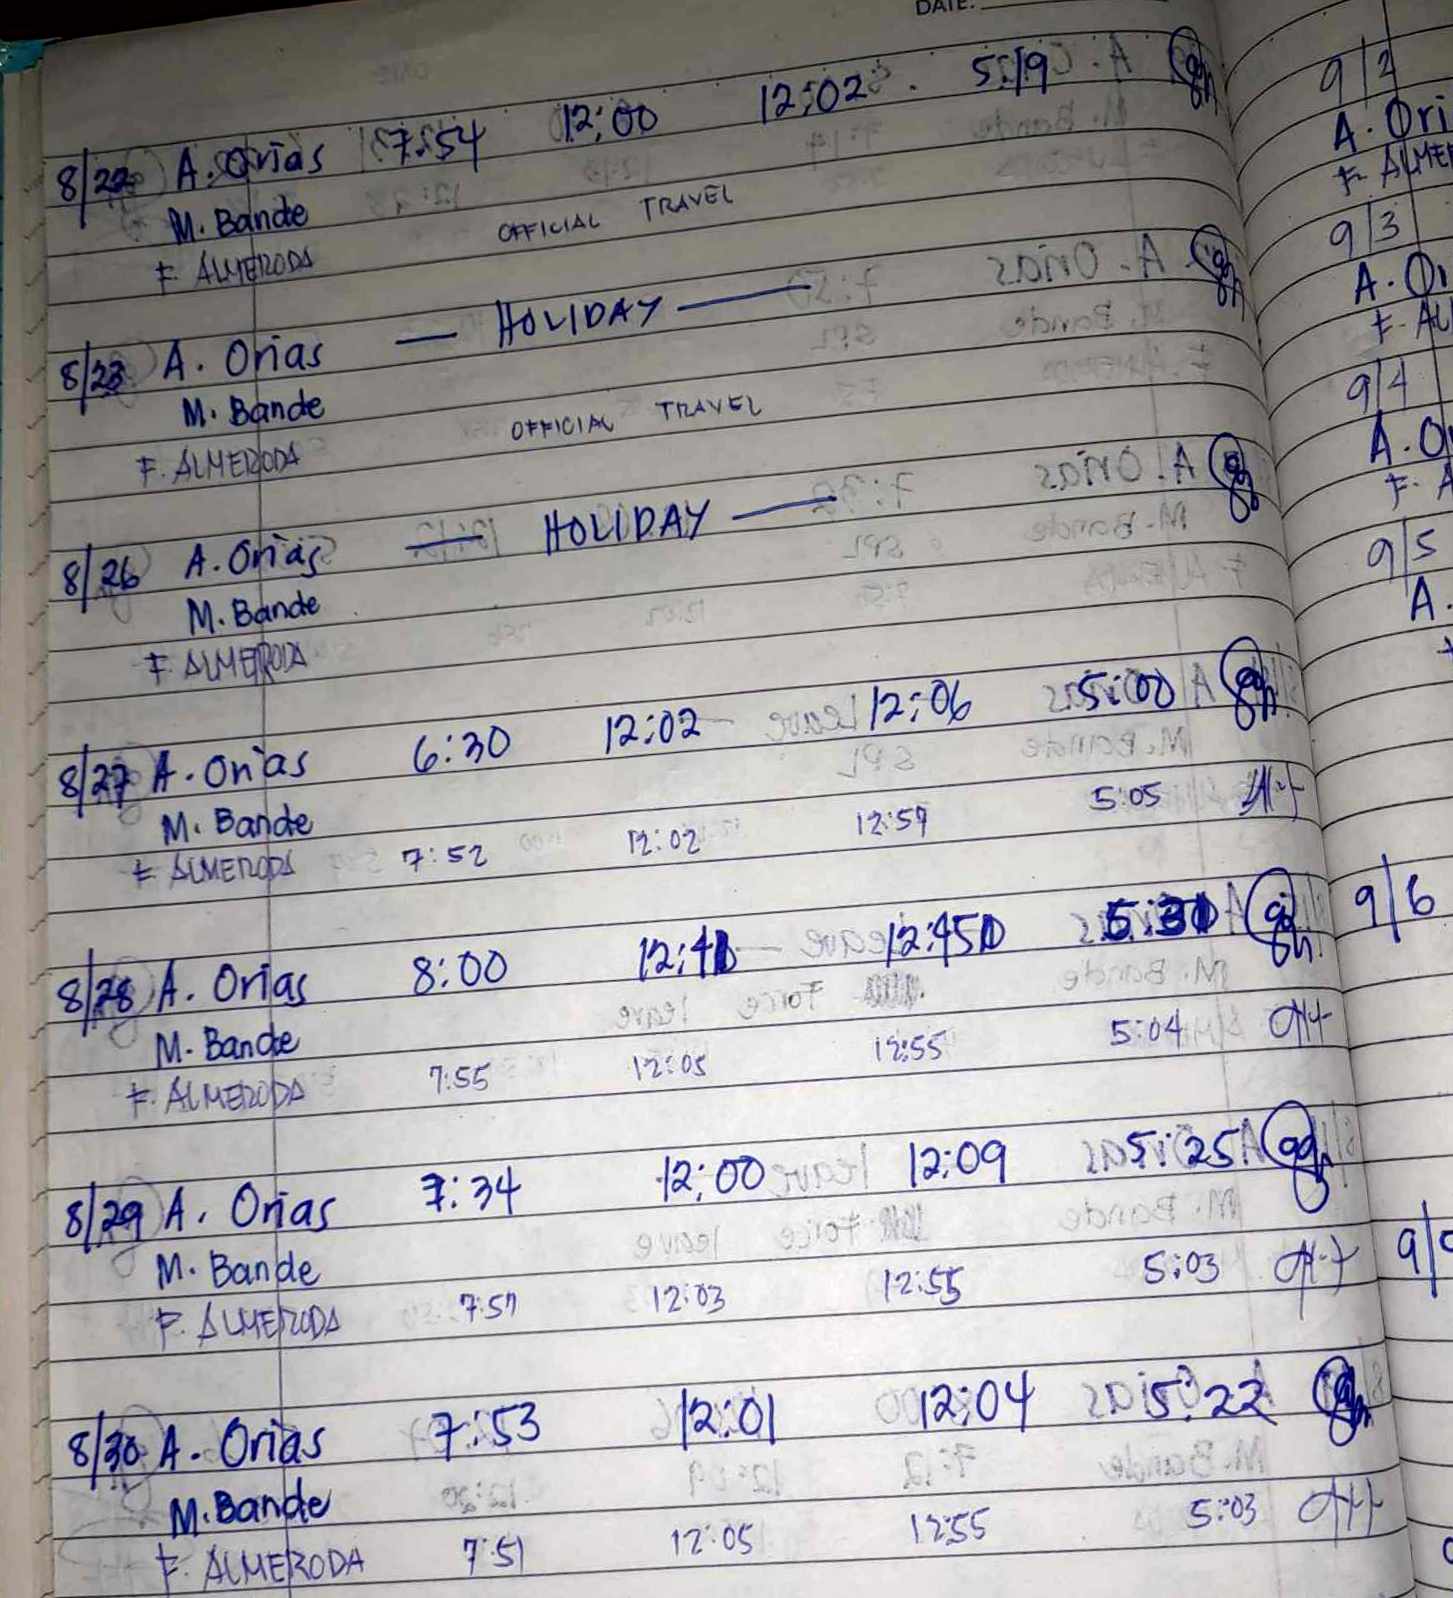 DATE:
8/22 A. Orias 7:54 12:00 12:02 5:19
M. Bande
F. ALMERODA OFFICIAL TRAVEL
8/23 A. Orias — HOLIDAY —
M. Bande
F. ALMERODA OFFICIAL TRAVEL
8/26 A. Orias — HOLIDAY —
M. Bande
F. ALMERODA
8/27 A. Orias 6:30 12:02 12:06 5:00
M. Bande
F. ALMERODA 7:52 12:02 12:57 5:05
8/28 A. Orias 8:00 12:45
M. Bande
F. ALMERODA 7:55 12:05 12:55 5:04
8/29 A. Orias 7:34 12:00 12:09 5:25
M. Bande
F. ALMERODA 7:57 12:03 12:55 5:03
8/30 A. Orias 7:53 12:01 12:04 5:22
M. Bande
F. ALMERODA 7:51 12:05 12:55 5:03
9/2
A. Ori
F. ALMER
9/3
A. Or
F. AL
9/4
A. O
F. A
9/5
A.
9/6